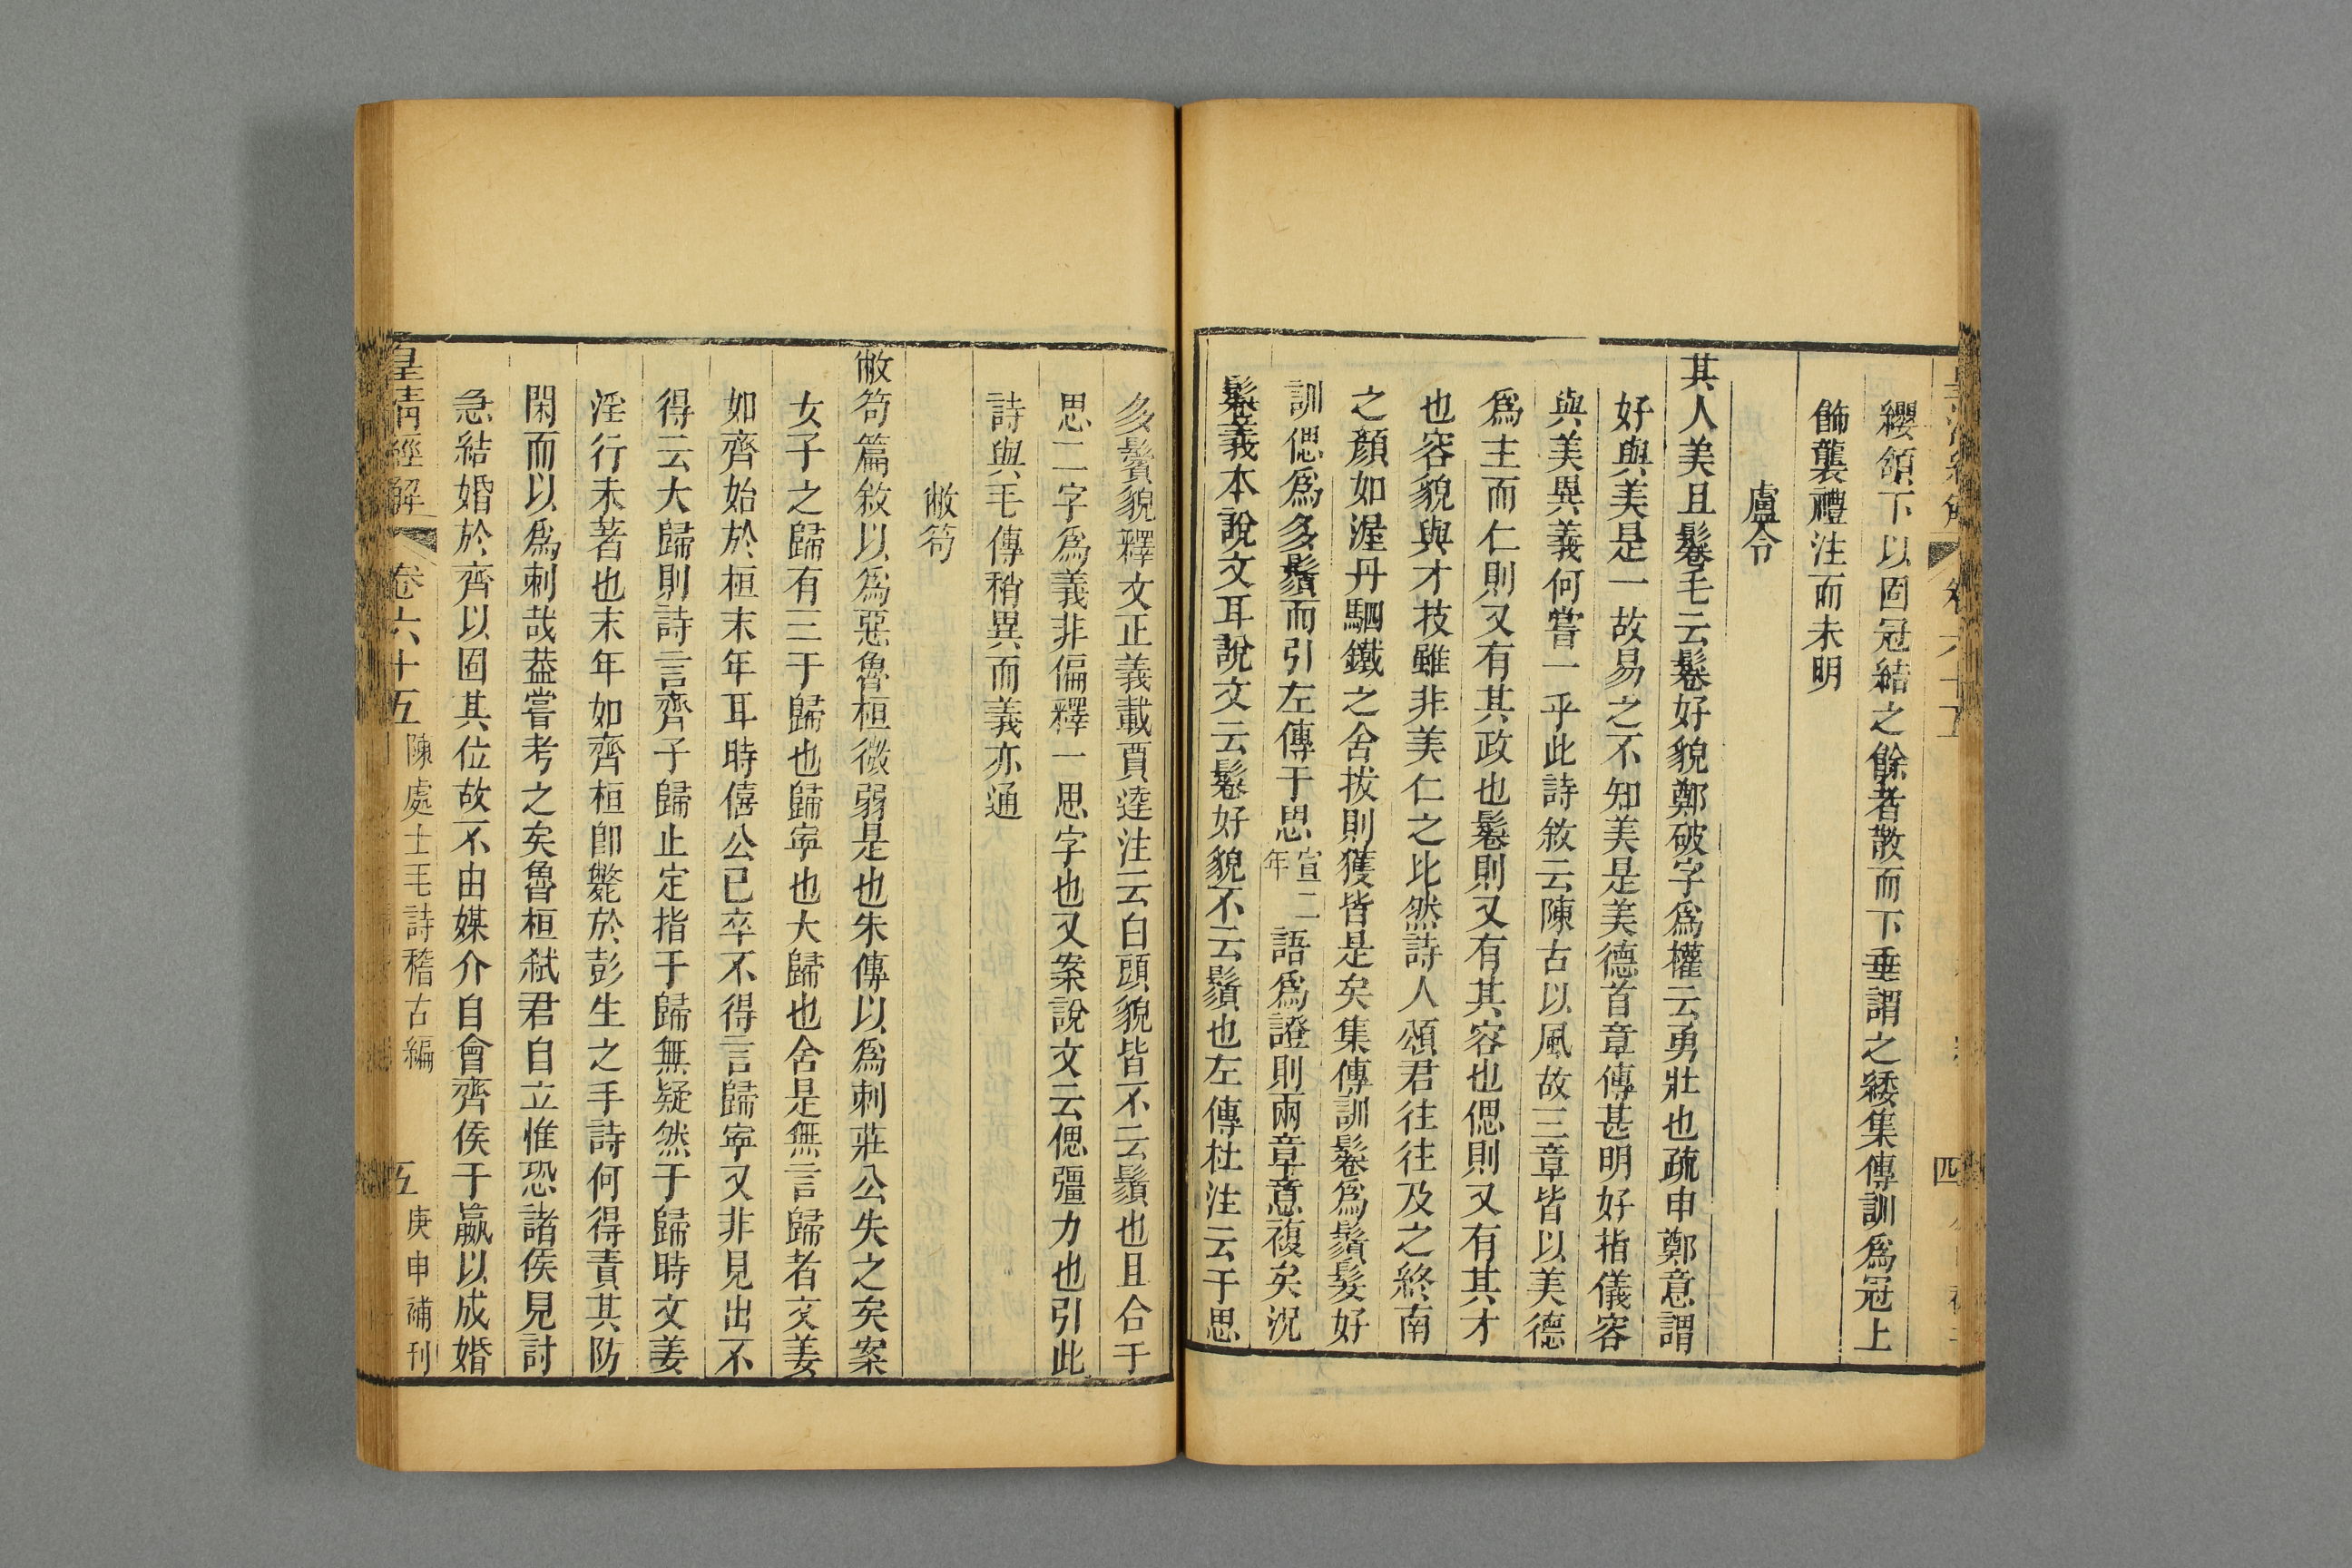 纓頷下以固冠結之餘者散而下垂謂之緌集傳訓爲冠上
飾襲禮注而未明
盧令
其人美且鬈毛云鬈好貌鄭破字爲權云勇壯也疏申鄭意謂
好與美是一故易之不知美是美德首章傳甚明好指儀容
與美異義何嘗一乎此詩敘云陳古以風故三章皆以美德
爲主而仁則又有其政也鬈則又有其容也偲則又有其才
也容貌與才技雖非美仁之比然詩人頌君往往及之終南
之顏如渥丹駟鐵之舍拔則獲皆是矣集傳訓鬈爲鬚髮好
訓偲爲多鬚而引左傳于思宣二年語爲證則兩章意複矣況
鬈義本說文耳說文云鬈好貌不云鬚也左傳杜注云于思
多鬢貌釋文正義載賈逵注云白頭貌皆不云鬚也且合于
思二字爲義非偏釋一思字也又案說文云偲彊力也引此
詩與毛傳稍異而義亦通
敝笱
敝笱篇敘以爲惡魯桓微弱是也朱傳以爲刺莊公失之矣案
女子之歸有三于歸也歸寧也大歸也舍是無言歸者文姜
如齊始於桓末年耳時僖公已卒不得言歸寧又非見出不
得云大歸則詩言齊子歸止定指于歸無疑然于歸時文姜
淫行未著也末年如齊桓卽斃於彭生之手詩何得責其防
閑而以爲刺哉葢嘗考之矣魯桓弒君自立惟恐諸侯見討
急結婚於齊以固其位故不由媒介自會齊侯于嬴以成婚
皇清經解 卷六十五 陳處士毛詩稽古編 五 庚申補刊